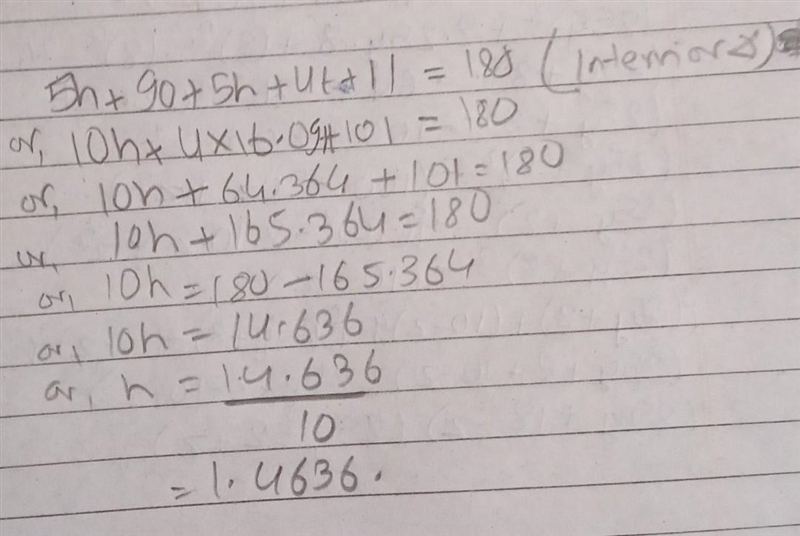 5h+90+5h+4t+11 = 180 (Interior
or, 10h+4×16.091+101 = 180
or, 10h+64.364+101=180
or, 10h+165.364=180
or, 10h=180-165.364
or, 10h=14.636
or, h=14.636
10
=1.4636.